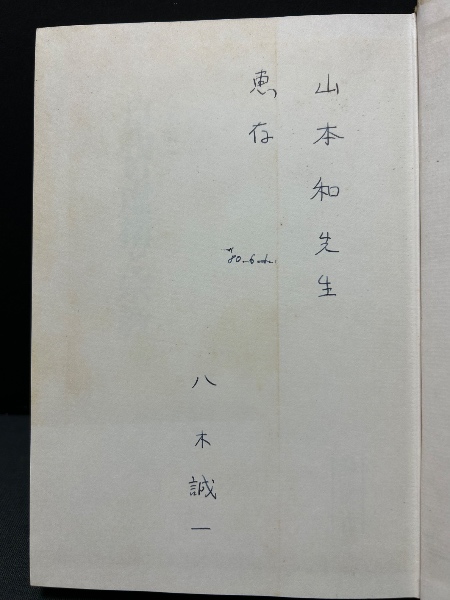 山本和先生
恵存
八木誠一